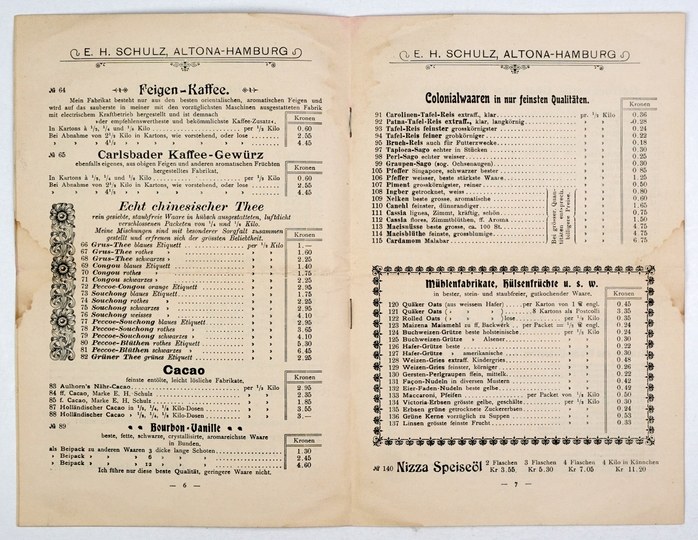 E. H. SCHULZ, ALTONA-HAMBURG
№ 64 Feigen-Kaffee.
Mein Fabrikat besteht nur aus den besten orientalischen, aromatischen Feigen und
wird auf das sauberste in meiner mit den vorzüglichsten Maschinen ausgestatteten Fabrik
mit electrischem Kraftbetrieb hergestellt und ist demnach
der empfehlenswertheste und bekömmlichste Kaffee-Zusatz.
Kronen
In Kartons à ¹/₈, ¹/₄ und ¹/₂ Kilo per ¹/₂ Kilo 0.60
Bei Abnahme von 2¹/₂ Kilo in Kartons, wie vorstehend, oder lose 2.55
» » » 4¹/₂ » » » » » » 4.45
№ 65 Carlsbader Kaffee-Gewürz
ebenfalls eigenes, aus obigen Feigen und anderen aromatischen Früchten
hergestelltes Fabrikat.
Kronen
In Kartons à ¹/₈, ¹/₄ und ¹/₂ Kilo per ¹/₂ Kilo 0.60
Bei Abnahme von 2¹/₂ Kilo in Kartons, wie vorstehend, oder lose 2.55
» » » 4¹/₂ » » » » » » 4.45
Echt chinesischer Thee
rein gesiebte, staubfreie Waare in hübsch ausgestatteten, luftdicht
verschlossenen Packeten von ¹/₄ und ¹/₂ Kilo.
Meine Mischungen sind mit besonderer Sorgfalt zusammen
gestellt und erfreuen sich der grössten Beliebtheit.
Kronen
66 Grus-Thee blaues Etiquett per ¹/₂ Kilo 1.—
67 Grus-Thee rothes » » 1.60
68 Grus-Thee schwarzes » » 2.25
69 Congou blaues Etiquett » » 1.40
70 Congou rothes » » 1.75
71 Congou schwarzes » » 2.25
72 Peccoe-Congou orange Etiquett » » 2.95
73 Souchong blaues Etiquett » » 1.75
74 Souchong rothes » » 2.25
75 Souchong schwarzes » » 2.95
76 Souchong weisses » » 4.10
77 Peccoe-Souchong blaues Etiquett » » 2.95
78 Peccoe-Souchong rothes » » 3.65
79 Peccoe-Souchong schwarzes » » 4.10
80 Peccoe-Blüthen rothes Etiquett » » 5.30
81 Peccoe-Blüthen schwarzes » » 6.45
82 Grüner Thee grünes Etiquett » » 2.25
Cacao
feinste entölte, leicht lösliche Fabrikate.
Kronen
83 Aulhorn's Nähr-Cacao per ¹/₂ Kilo 2.95
84 ff. Cacao, Marke E. H. Schulz » » 2.35
85 f. Cacao, Marke E. H. Schulz » » 1.85
87 Holländischer Cacao in ¹/₈, ¹/₄, ¹/₂ Kilo-Dosen » » 3.55
88 Holländischer Cacao in ¹/₁ Kilo-Dosen » » 3.—
№ 89 Bourbon-Vanille
beste, fette, schwarze, crystallisirte, aromareichste Waare
in Bunden,
Kronen
als Beipack zu anderen Waaren 3 dicke lange Schoten 1.30
» Beipack » » » 6 » » » 2.45
» Beipack » » » 12 » » » 4.60
Ich führe nur diese beste Qualität, geringere Waare nicht.
— 6 —
E. H. SCHULZ, ALTONA-HAMBURG
Colonialwaaren in nur feinsten Qualitäten.
Kronen
91 Carolinen-Tafel-Reis extraff., klar pr. ¹/₂ Kilo 0.36
92 Patna-Tafel-Reis extraff., klar, langkörnig » » 0.28
93 Tafel-Reis feinster grosskörnigster » » 0.24
94 Tafel-Reis feiner grobkörniger » » 0.22
95 Bruch-Reis auch für Futterzwecke » » 0.18
97 Tapioca-Sago echter in Stücken » » 0.30
98 Perl-Sago echter weisser » » 0.25
99 Graupen-Sago (sog. Ochsenaugen) » » 0.30
105 Pfeffer Singapore, schwarzer bester » » 0.85
106 Pfeffer weisser, beste stärkste Waare » » 1.25
107 Piment grosskörnigster, reiner » » 0.50
108 Ingber getrocknet, weiss 0.80
109 Nelken beste grosse, aromatische 0.60
110 Caneel feinster, dünnrandiger 1.65
111 Cassia lignea, Zimmt, kräftig, schön 0.75
112 Cassia flores, Zimmtblüthen, ff. Aroma 1.50
113 Macisnüsse beste grosse, ca. 100 St. 4.75
114 Macisblüthe feinste, grossblumige 4.75
115 Cardamom Malabar 6.75
Bei grösser. Quan-
titäten entsprech.
billigere Preise!
Mühlenfabrikate, Hülsenfrüchte u. s. w.
in bester, stein- und staubfreier, gutkochender Waare.
Kronen
120 Quäker Oats (aus weissem Hafer) per Karton von ℔ engl. 0.45
121 Quäker Oats ( » » » ) 8 Kartons als Postcolli 3.35
122 Rolled Oats ( » » » ) lose per ¹/₂ Kilo 0.35
123 Maizena Maismehl zu ff. Backwerk per Packet zu ¹/₂ ℔ engl. 0.24
124 Buchweizen-Grütze beste holsteinische per ¹/₂ Kilo 0.24
125 Buchweizen-Grütze » Alsener » » 0.30
126 Hafer-Grütze beste » » 0.22
127 Hafer-Grütze » amerikanische » » 0.30
128 Weizen-Gries extraff. Kindergries » » 0.48
129 Weizen-Gries feinster, körniger » » 0.26
130 Gersten-Perlgraupen fein, mittelk. » » 0.22
131 Façon-Nudeln in diversen Mustern » » 0.42
132 Eier-Faden-Nudeln beste gelbe » » 0.42
133 Maccaroni, Pfeifen per Packet von ¹/₂ Kilo 0.50
134 Victoria-Erbsen grösste gelbe, geschälte per ¹/₂ Kilo 0.30
135 Erbsen grüne getrocknete Zuckererbsen » » 0.24
136 Grüne Kerne vorzüglich zu Suppen » » 0.53
137 Linsen grösste feinste Frucht » » 0.33
№ 140 Nizza Speiseöl 2 Flaschen 3 Flaschen 4 Flaschen 4 Kilo in Kännchen
Kr 3.55 Kr 5.30 Kr 7.05 Kr 11.20
— 7 —